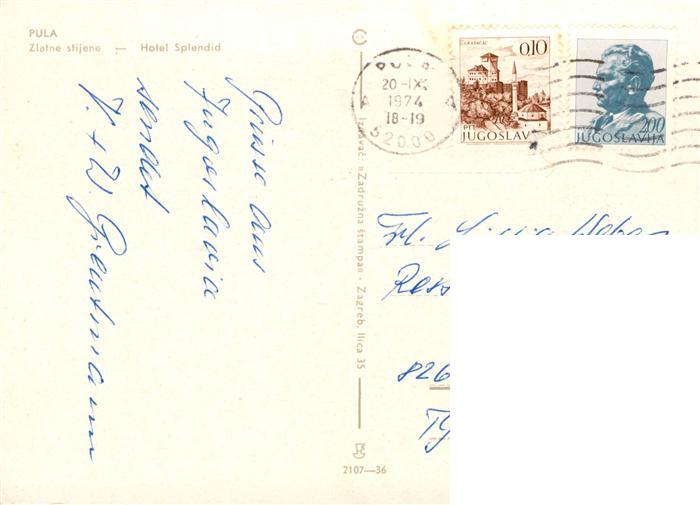 PULA
Zlatne stijene — Hotel Splendid
Grüsse aus
Jugoslavia
sendet
+ W
Izdavač: »Zadružna štampa« - Zagreb, Ilica 35
2107—36
PULA
20-IX
1974
18-19
A A
52000
GRADAČAC
0,10
PTT
JUGOSLAV
2,00
JUGOSLAVIJA
Frl.
826